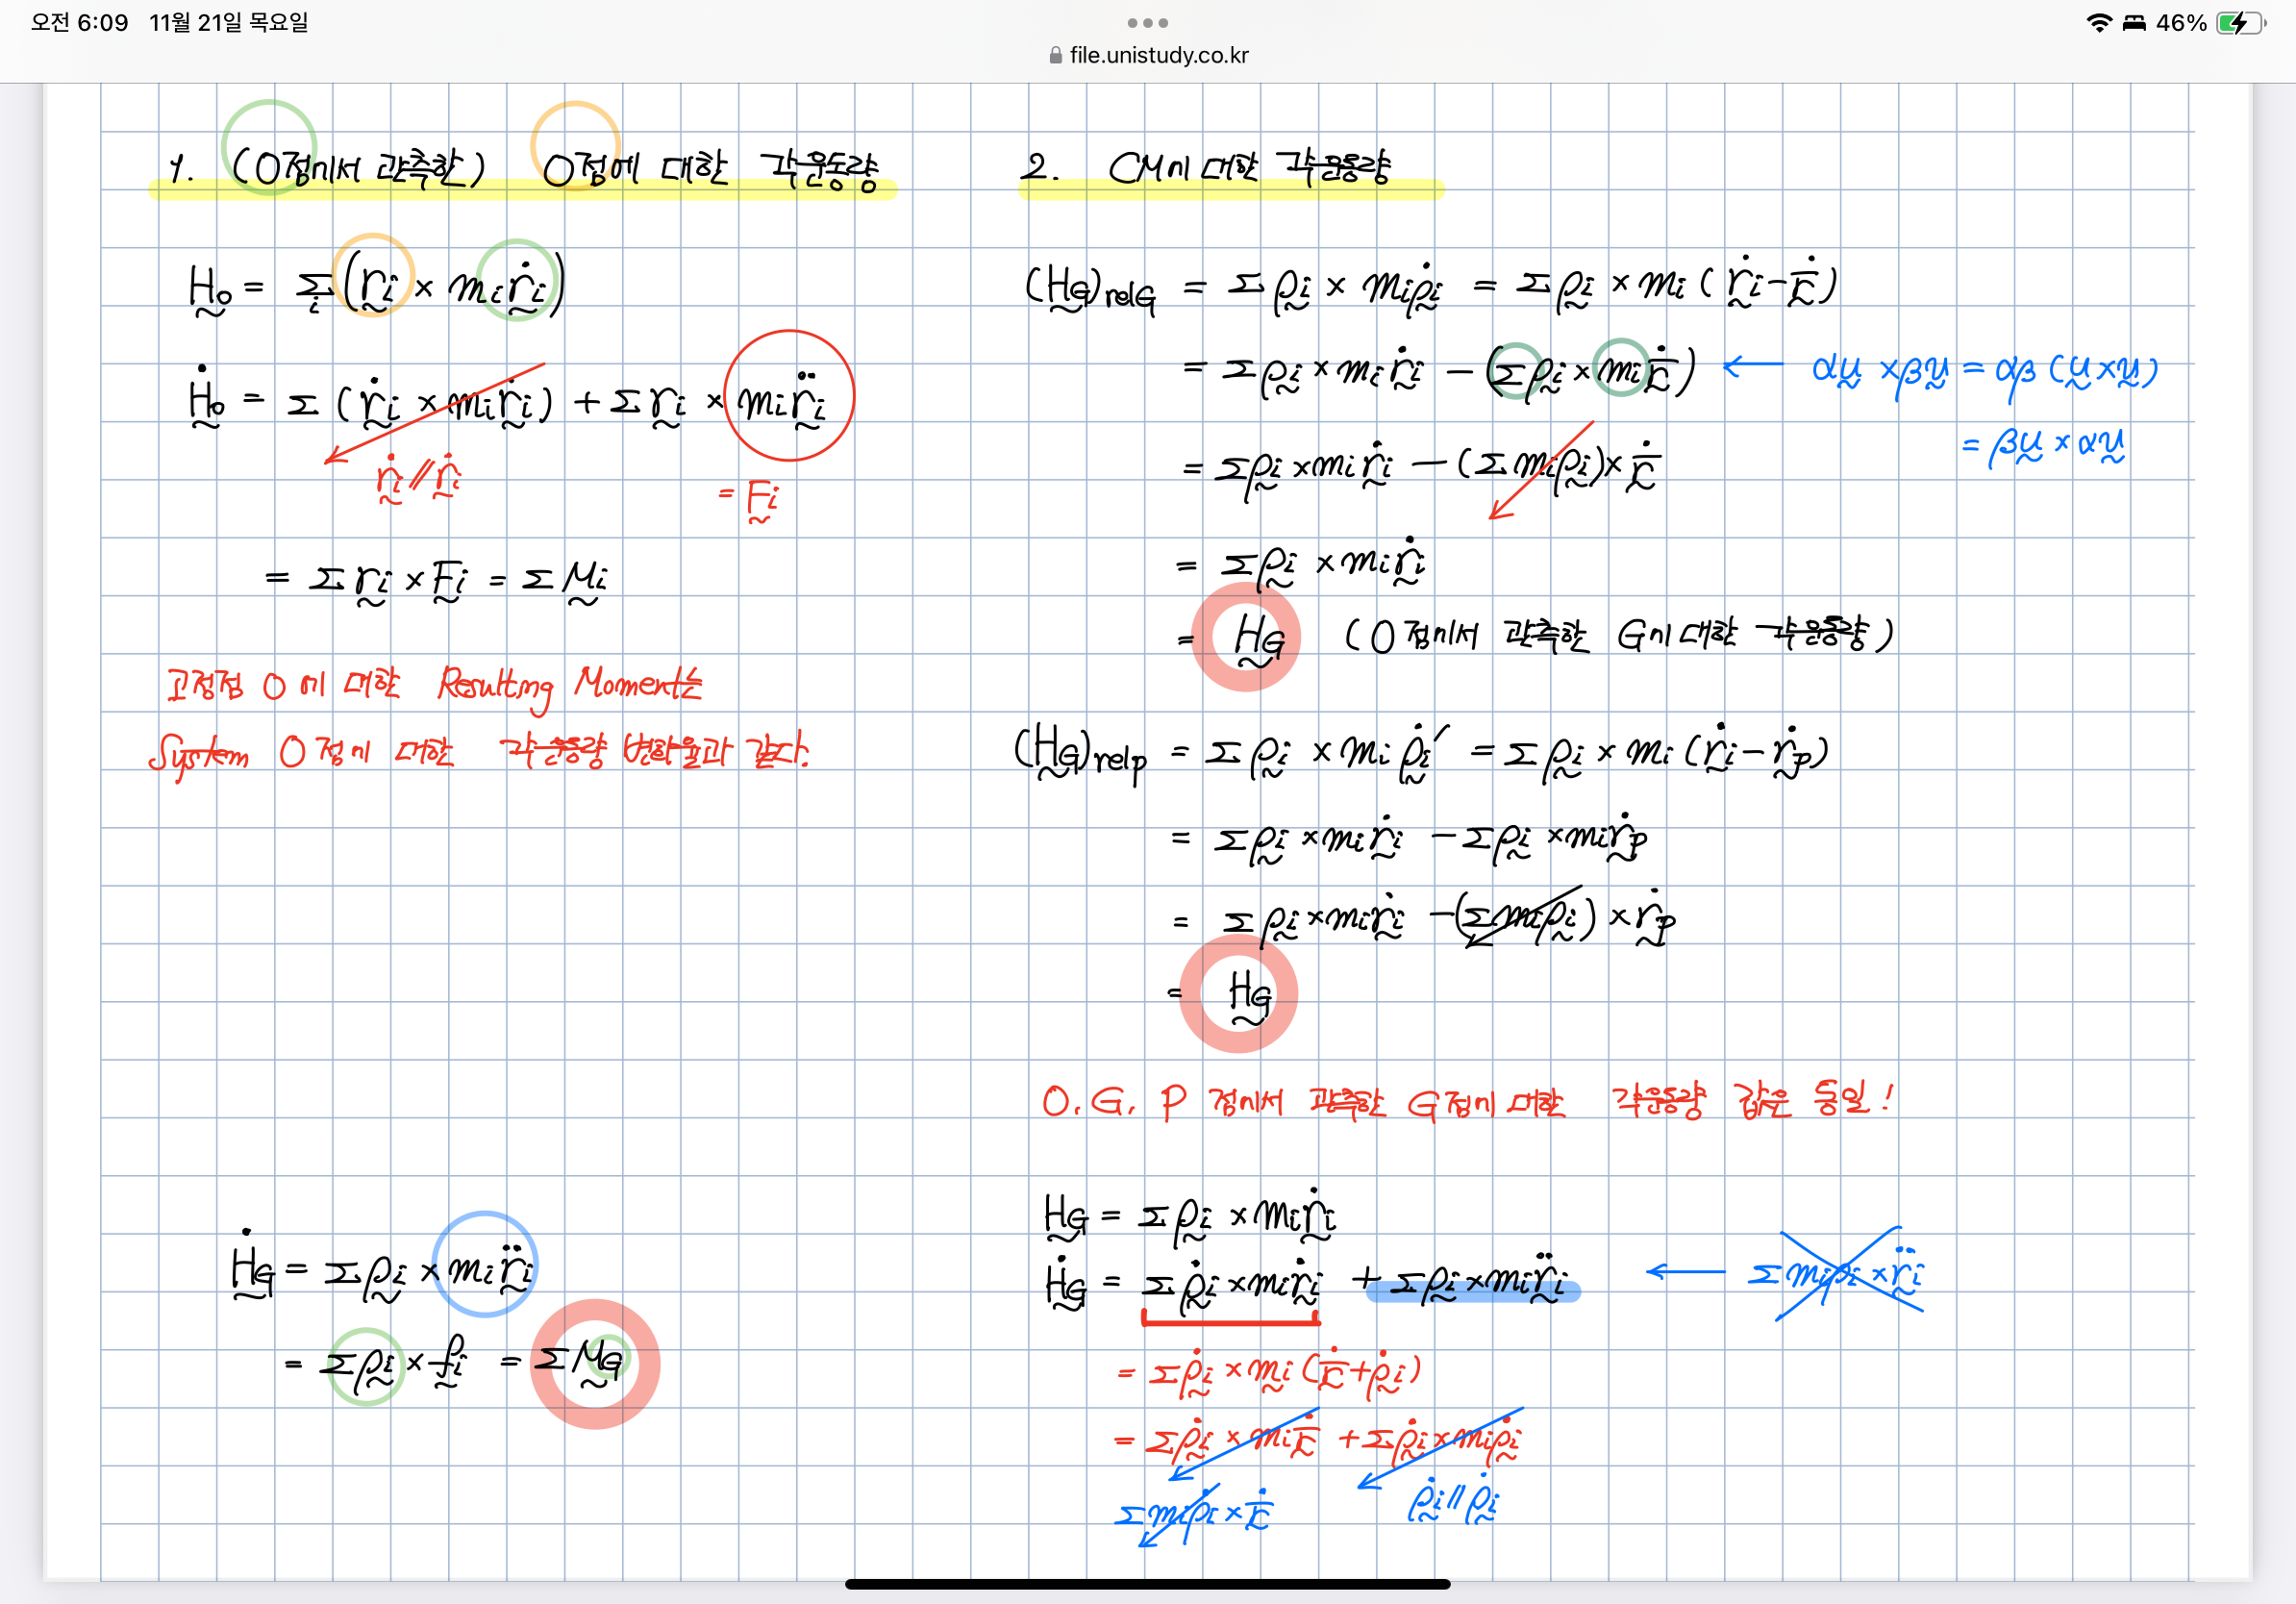 오전 6:09 11월 21일 목요일
46%
file.unistudy.co.kr
1. (O점에서 관측한) O점에 대한 각운동량
H₀ = Σᵢ(rᵢ × mᵢṙᵢ)
Ḣ₀ = Σ(ṙᵢ × mᵢṙᵢ) + Σrᵢ × mᵢr̈ᵢ
ṙᵢ // ṙᵢ
= Fᵢ
= Σrᵢ × Fᵢ = ΣMᵢ
고정점 O에 대한 Resulting Moment는
System O점에 대한 각운동량 변화율과 같다.
Ḣ_G = Σρᵢ × mᵢr̈ᵢ
= Σρᵢ × fᵢ = ΣM_G
2. CM에 대한 각운동량
(H_G)rel G = Σρᵢ × mᵢρ̇ᵢ = Σρᵢ × mᵢ(ṙᵢ - r̄̇)
= Σρᵢ × mᵢṙᵢ - (Σρᵢ × mᵢr̄̇) ← αu × βv = αβ(u × v)
= βu × αv
= Σρᵢ × mᵢṙᵢ - (Σmᵢρᵢ) × r̄̇
= Σρᵢ × mᵢṙᵢ
= H_G (O점에서 관측한 G에 대한 각운동량)
(H_G)rel p = Σρᵢ × mᵢρ̇ᵢ′ = Σρᵢ × mᵢ(ṙᵢ - ṙp)
= Σρᵢ × mᵢṙᵢ - Σρᵢ × mᵢṙp
= Σρᵢ × mᵢṙᵢ - (Σmᵢρᵢ) × ṙp
= H_G
O. G. P 점에서 관측한 G점에 대한 각운동량 값은 동일!
H_G = Σρᵢ × mᵢṙᵢ
Ḣ_G = Σρ̇ᵢ × mᵢṙᵢ + Σρᵢ × mᵢr̈ᵢ ← Σmᵢρᵢ × r̈ᵢ
= Σρ̇ᵢ × mᵢ(r̄̇ + ρ̇ᵢ)
= Σρ̇ᵢ × mᵢr̄̇ + Σρ̇ᵢ × mᵢρ̇ᵢ
Σmᵢρ̇ᵢ × r̄̇
ρ̇ᵢ // ρ̇ᵢ